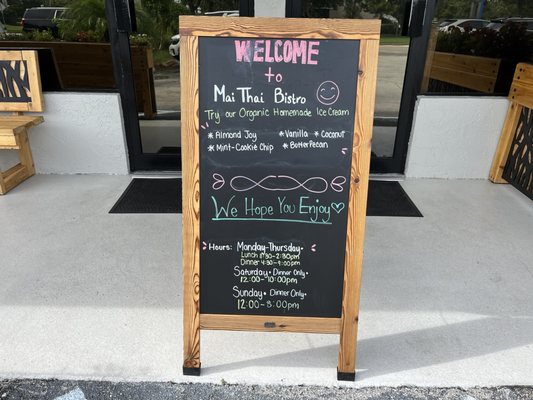 WELCOME
to
Mai Thai Bistro
Try our Organic Homemade Ice Cream
* Almond Joy * Vanilla * Coconut
* Mint-Cookie Chip * Butter Pecan
We Hope You Enjoy
Hours: Monday-Thursday
Lunch 11:30-2:30pm
Dinner 4:30-9:00pm
Saturday • Dinner Only •
12:00-10:00pm
Sunday • Dinner Only •
12:00-9:00pm